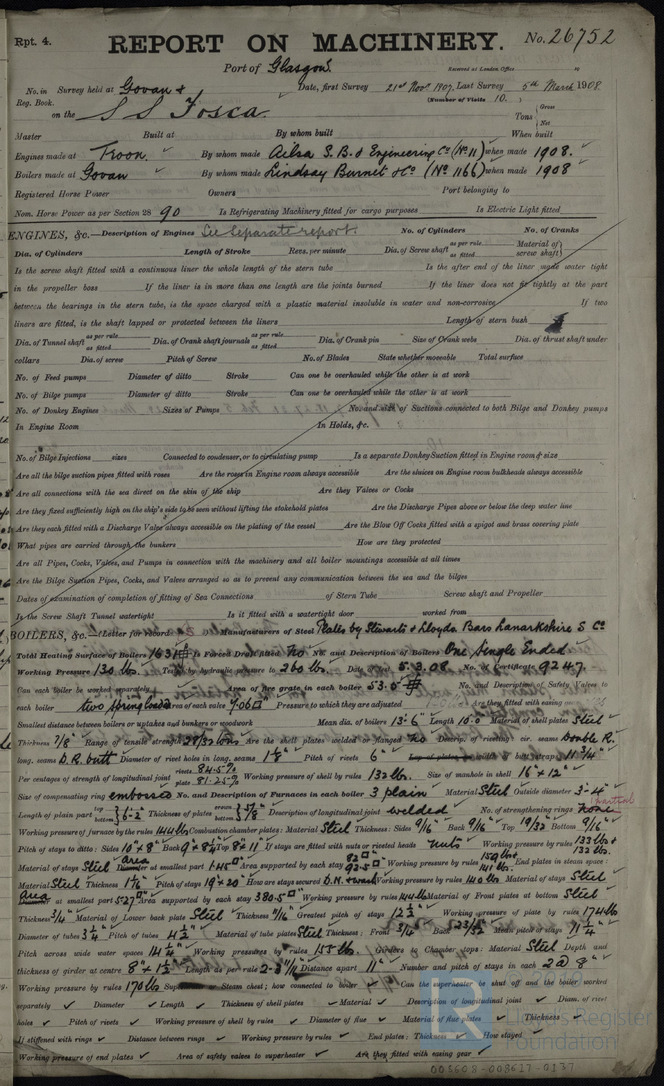 Rpt. 4.
REPORT ON MACHINERY. No. 26752
Port of Glasgow.
Received at London Office
No. in Survey held at Govan & Date, first Survey 21st Novr. 1907, Last Survey 5th March 1908
Reg. Book. (Number of Visits 10.)
on the S S Fosca. Tons { Gross Net
Master Built at By whom built When built
Engines made at Troon. By whom made Ailsa S. B. & Engineering Co (No 11) when made 1908.
Boilers made at Govan By whom made Lindsay Burnet & Co (No 1166) when made 1908
Registered Horse Power Owners Port belonging to
Nom. Horse Power as per Section 28 90 Is Refrigerating Machinery fitted for cargo purposes Is Electric Light fitted
ENGINES, &c.—Description of Engines See Separate report. No. of Cylinders No. of Cranks
Dia. of Cylinders Length of Stroke Revs. per minute Dia. of Screw shaft as per rule as fitted Material of screw shaft
Is the screw shaft fitted with a continuous liner the whole length of the stern tube Is the after end of the liner made water tight
in the propeller boss If the liner is in more than one length are the joints burned If the liner does not fit tightly at the part
between the bearings in the stern tube, is the space charged with a plastic material insoluble in water and non-corrosive If two
liners are fitted, is the shaft lapped or protected between the liners Length of stern bush
Dia. of Tunnel shaft as per rule as fitted Dia. of Crank shaft journals as per rule as fitted Dia. of Crank pin Size of Crank webs Dia. of thrust shaft under
collars Dia. of screw Pitch of Screw No. of Blades State whether moveable Total surface
No. of Feed pumps Diameter of ditto Stroke Can one be overhauled while the other is at work
No. of Bilge pumps Diameter of ditto Stroke Can one be overhauled while the other is at work
No. of Donkey Engines Sizes of Pumps No. and size of Suctions connected to both Bilge and Donkey pumps
In Engine Room In Holds, &c.
No. of Bilge Injections sizes Connected to condenser, or to circulating pump Is a separate Donkey Suction fitted in Engine room & size
Are all the bilge suction pipes fitted with roses Are the roses in Engine room always accessible Are the sluices on Engine room bulkheads always accessible
Are all connections with the sea direct on the skin of the ship Are they Valves or Cocks
Are they fixed sufficiently high on the ship's side to be seen without lifting the stokehold plates Are the Discharge Pipes above or below the deep water line
Are they each fitted with a Discharge Valve always accessible on the plating of the vessel Are the Blow Off Cocks fitted with a spigot and brass covering plate
What pipes are carried through the bunkers How are they protected
Are all Pipes, Cocks, Valves, and Pumps in connection with the machinery and all boiler mountings accessible at all times
Are the Bilge Suction Pipes, Cocks, and Valves arranged so as to prevent any communication between the sea and the bilges
Dates of examination of completion of fitting of Sea Connections of Stern Tube Screw shaft and Propeller
Is the Screw Shaft Tunnel watertight Is it fitted with a watertight door worked from
BOILERS, &c.—(Letter for record) Manufacturers of Steel Plates by Stewarts & Lloyds Bars Lanarkshire S Co
Total Heating Surface of Boilers 1631 Is Forced Draft fitted No No. and Description of Boilers One, Single Ended
Working Pressure 130 lbs. Tested by hydraulic pressure to 260 lbs Date of test 5.3.08 No. of Certificate 9247.
Can each boiler be worked separately Area of fire grate in each boiler 53.0 No. and Description of Safety Valves to
each boiler two Spring Loaded Area of each valve 7.06 Pressure to which they are adjusted Are they fitted with easing gear
Smallest distance between boilers or uptakes and bunkers or woodwork Mean dia. of boilers 13-6 Length 10-0 Material of shell plates Steel
Thickness 7/8 Range of tensile strength 28/32 tons Are the shell plates welded or flanged No Descrip. of riveting: cir. seams Double R.
long. seams D.R. butt Diameter of rivet holes in long. seams 1 1/8 Pitch of rivets 6" Lap of plates or width of butt straps 11 3/4"
Per centages of strength of longitudinal joint rivets 84.5% plate 81.25% Working pressure of shell by rules 132 lbs. Size of manhole in shell 16" x 12"
Size of compensating ring embossed No. and Description of Furnaces in each boiler 3 plain Material Steel Outside diameter 3-4"
Length of plain part top bottom 6-2" Thickness of plates crown bottom 7/8 Description of longitudinal joint welded No. of strengthening rings none
Working pressure of furnace by the rules 144 lbs Combustion chamber plates: Material Steel Thickness: Sides 9/16" Back 9/16" Top 19/32 Bottom 9/16"
Pitch of stays to ditto: Sides 10" x 8" Back 9" x 8 1/4 Top 8" x 11" If stays are fitted with nuts or riveted heads nuts Working pressure by rules 133 lbs 132 lbs.
Material of stays Steel Area at smallest part 1.45 Area supported by each stay 82 92.5 Working pressure by rules 159 lbs 141 lbs. End plates in steam space:
Material Steel Thickness 1 1/16 Pitch of stays 19" x 20" How are stays secured D.N. & wash Working pressure by rules 140 lbs Material of stays Steel
Area at smallest part 5.27 Area supported by each stay 380.5 Working pressure by rules 144 lbs Material of Front plates at bottom Steel
Thickness 3/4" Material of Lower back plate Steel Thickness 11/16" Greatest pitch of stays 12 1/2" Working pressure of plate by rules 174 lbs
Diameter of tubes 3 1/4" Pitch of tubes 4 1/2" Material of tube plates Steel Thickness: Front 3/4" Back 23/32 Mean pitch of stays 11 1/4"
Pitch across wide water spaces 14 1/4" Working pressures by rules 155 lbs. Girders to Chamber tops: Material Steel Depth and
thickness of girder at centre 8" x 1 1/2" Length as per rule 2-3 11/16" Distance apart 11" Number and pitch of stays in each 2 @ 8"
Working pressure by rules 170 lbs Steam chest; how connected to boiler Can the superheater be shut off and the boiler worked
separately Diameter Length Thickness of shell plates Material Description of longitudinal joint Diam. of rivet
holes Pitch of rivets Working pressure of shell by rules Diameter of flue Material of flue plates Thickness
If stiffened with rings Distance between rings Working pressure by rules End plates: Thickness How stayed
Working pressure of end plates Area of safety valves to superheater Are they fitted with easing gear
Lloyd's Register
Foundation
003608-008617-0137